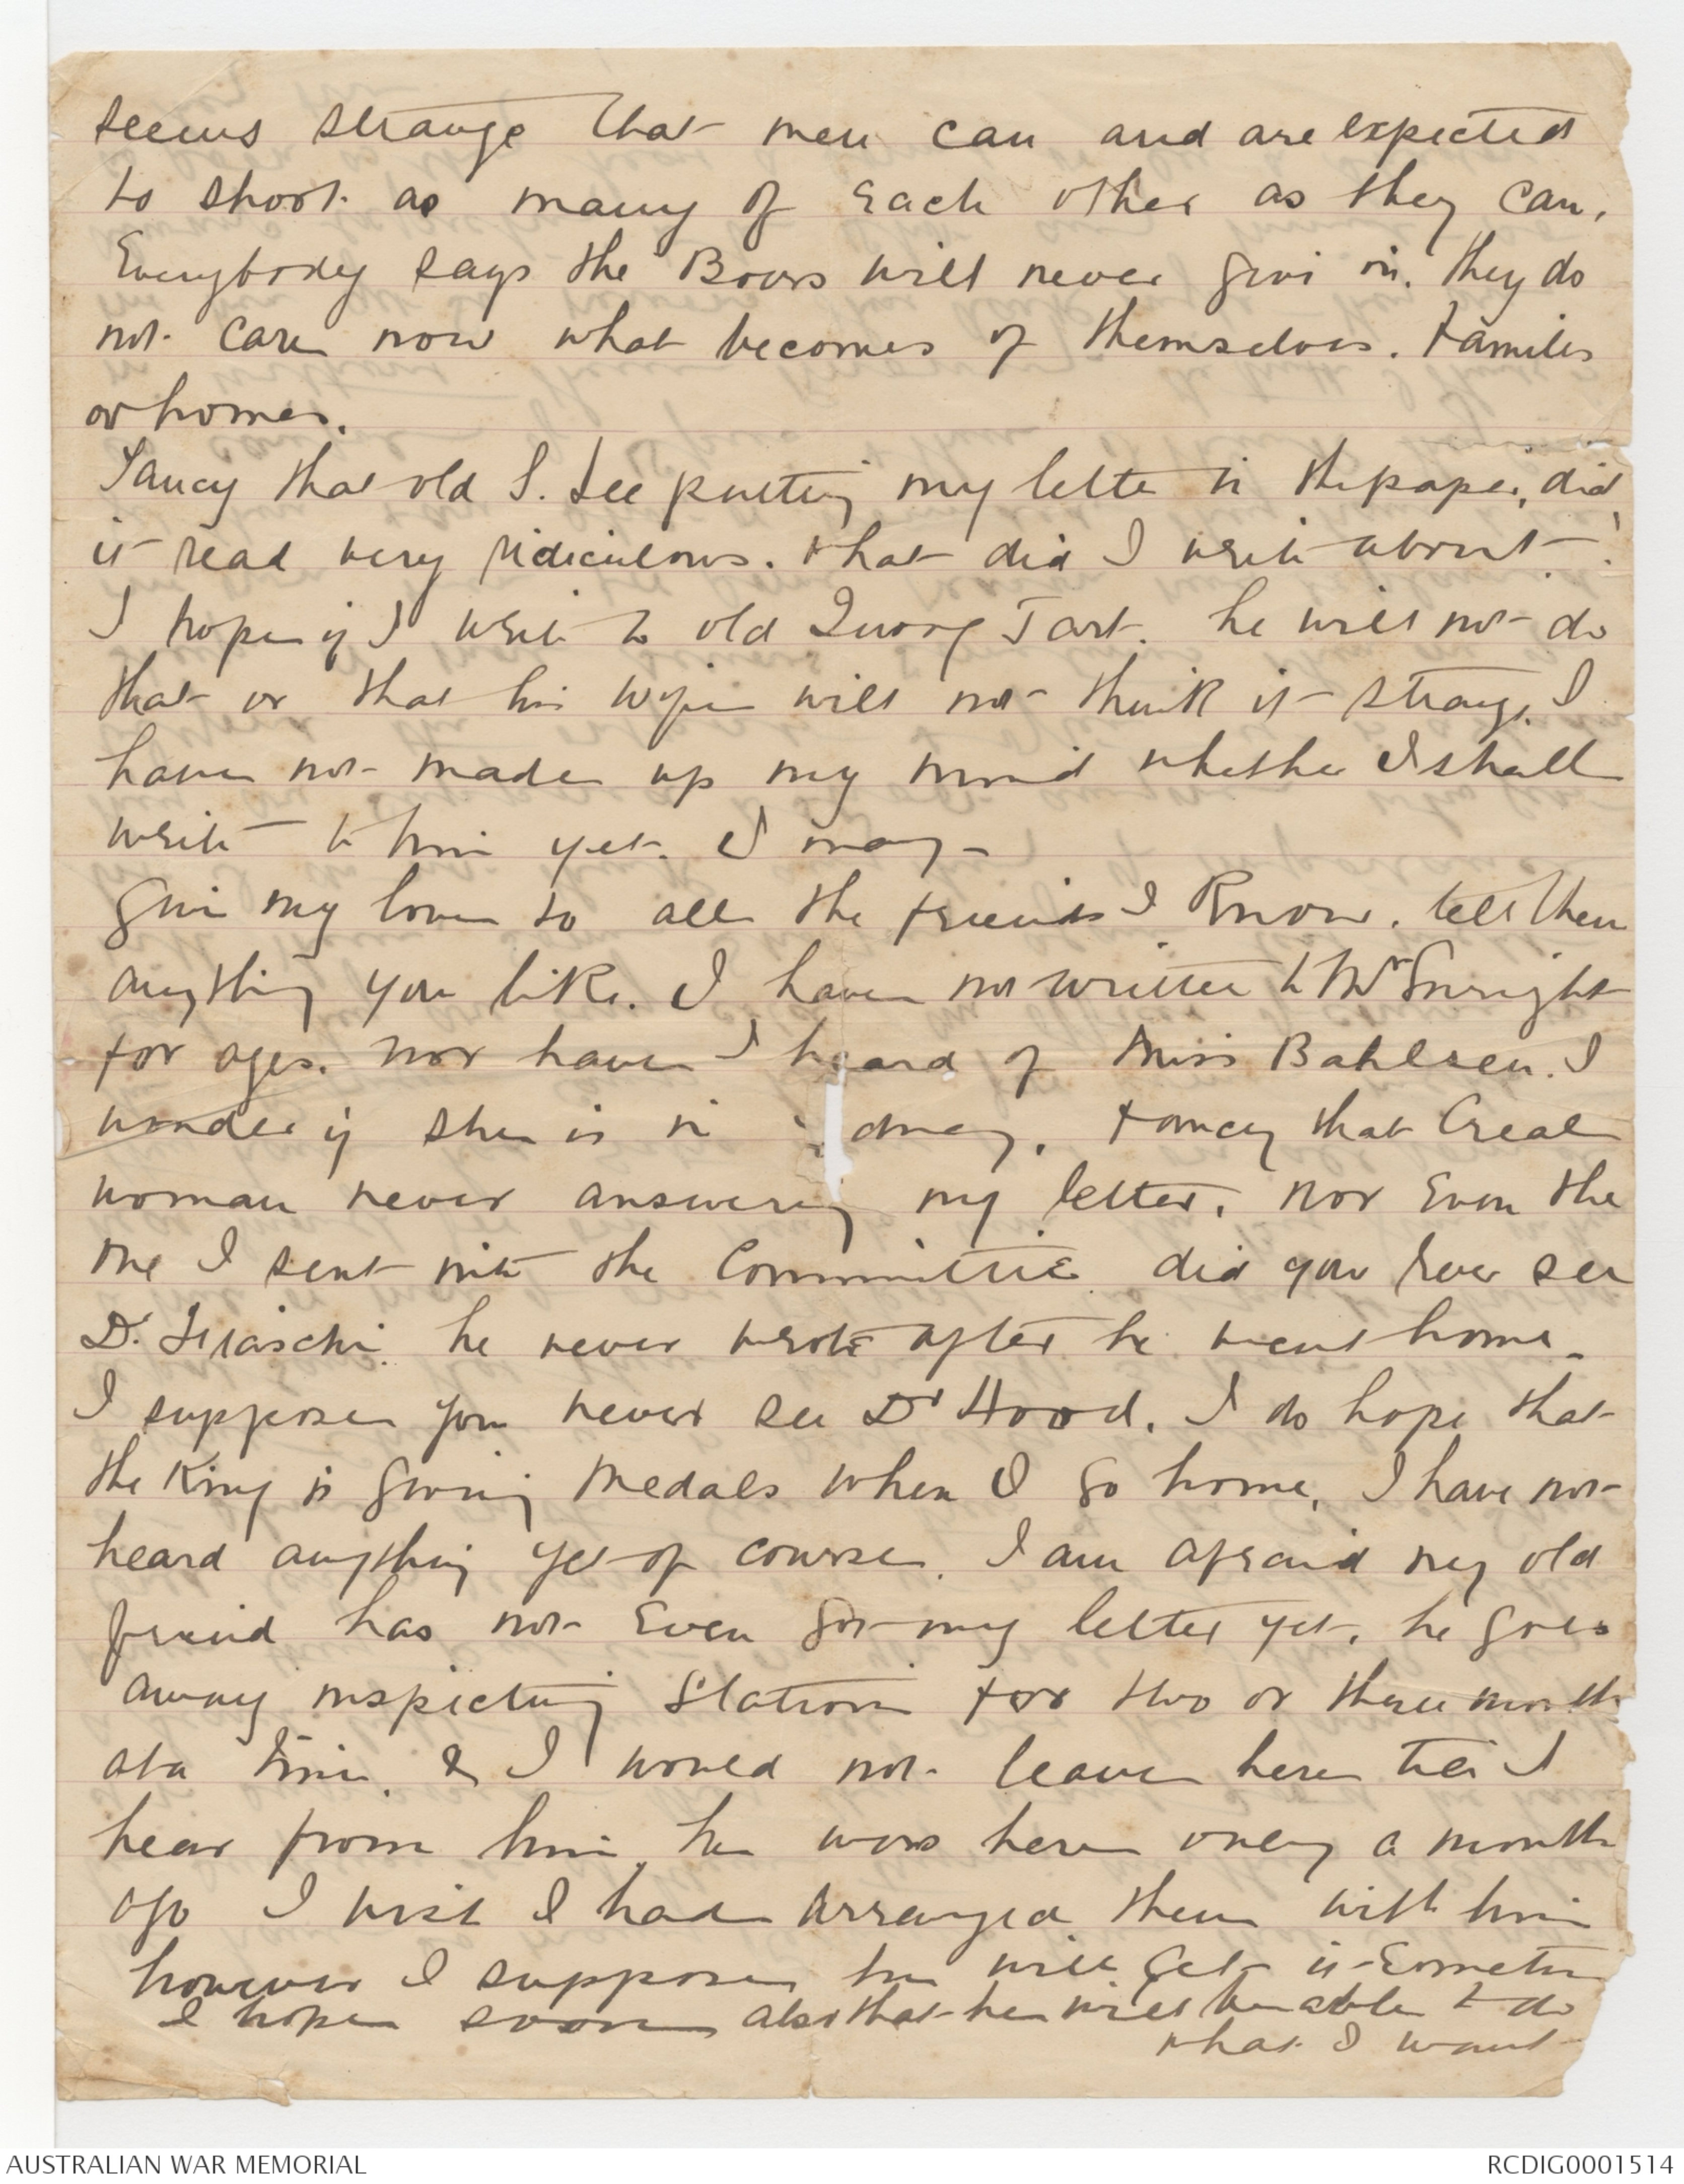 seems strange that men can and are expected
to shoot as many of each other as they can.
Everybody says the Boers will never give in. they do
not care now what becomes of themselves. families
or homes.
Fancy that old S. Lee putting my letter in the paper, did
it read very ridiculous. what did I write about?
I hope if I write to old Quong Tart. he will not do
that or that his wife will not think it strange. I
have not made up my mind whether I shall
write to him yet. I may -
Give my love to all the friends I know. tell them
anything you like. I have not written to Mr Enright
for ages. nor have I heard of Miss Bahlsen. I
wonder if she is in dney. fancy that Creal
woman never answering my letter. nor even the
one I sent with the Committee did you ever see
Dr. Fiaschi. he never wrote after he went home.
I suppose you never see Dr Hood. I do hope that
the King is giving medals when I go home. I have not
heard anything yet of course. I am afraid my old
friend has not even got my letter yet. he goes
away inspecting Station for two or three month
at a time. & I would not leave here till I
hear from him. he was here only a month
ago I wish I had arranged them with him
however I suppose he will get it sometime
I hope soon also that he will be able to do
what I want
AUSTRALIAN WAR MEMORIAL
RCDIG0001514